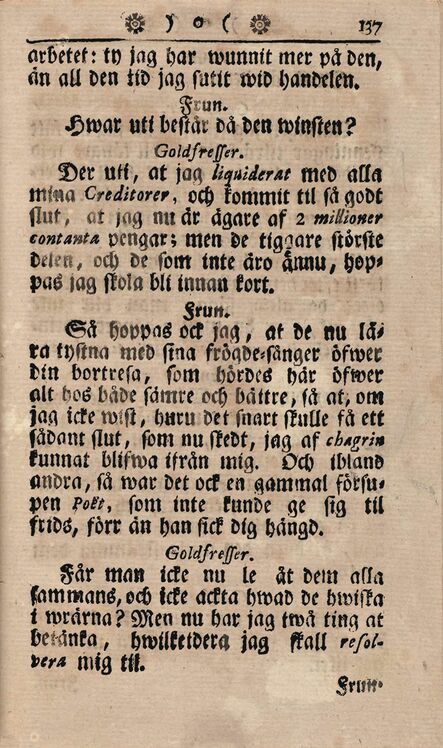 ) o ( 137
arbetet: ty jag har wunnit mer på den,
än all den tid jag sutit wid handelen.
Frun.
Hwar uti består då den winsten?
Goldfresser.
Der uti, at jag liquiderat med alla
mina Creditorer, och kommit til så godt
slut, at jag nu är ägare af 2 millioner
contanta pengar; men de tiggare största
delen, och de som inte äro ännu, hop-
pas jag skola bli innan kort.
Frun.
Så hoppas ock jag, at de nu lä-
ra tystna med sina frögde-sånger öfwer
din bortresa, som hördes här öfwer
alt hos både sämre och bättre, så at, om
jag icke wist, huru det snart skulle få ett
sådant slut, som nu skedt, jag af chagrin
kunnat blifwa ifrån mig. Och ibland
andra, så war det ock en gammal försu-
pen Poët, som inte kunde ge sig til
frids, förr än han fick dig hängd.
Goldfresser.
Får man icke nu le åt dem alla
sammans, och icke ackta hwad de hwiska
i wrårna? Men nu har jag twå ting at
betänka, hwilketdera jag skall resol-
vera mig til.
Frun-